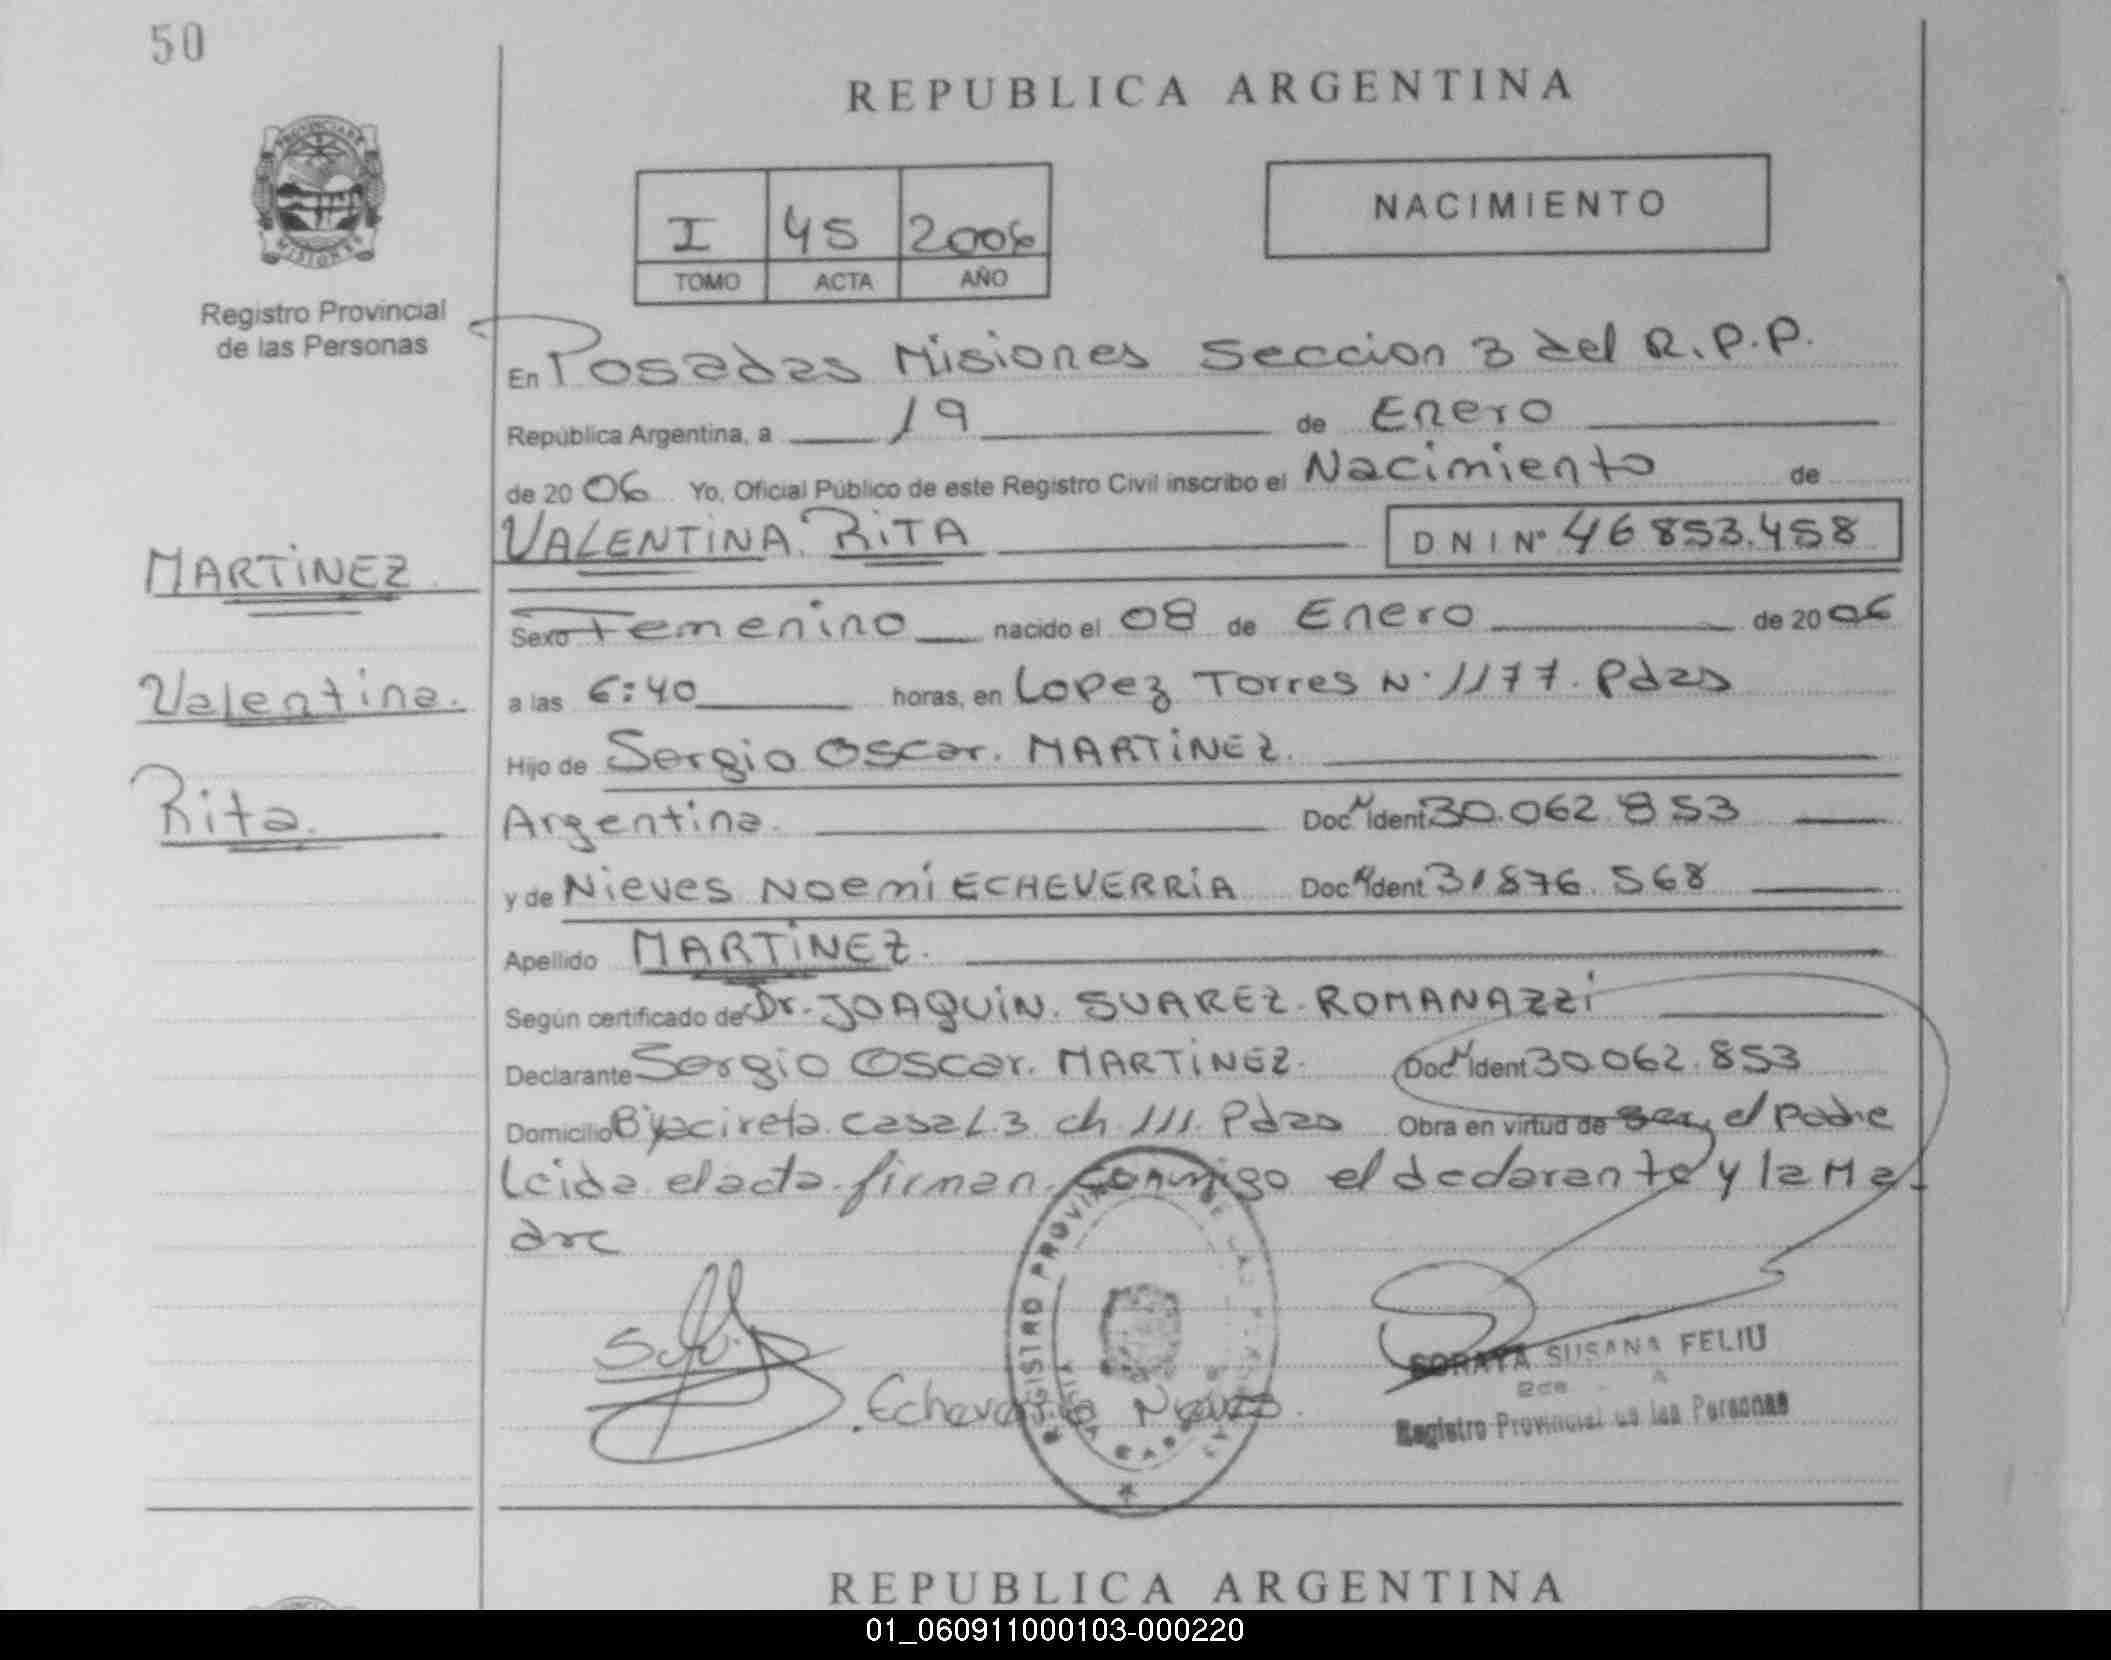 50
REPUBLICA ARGENTINA
PROVINCIA DE
MISIONES
Registro Provincial
de las Personas
I 45 2006
TOMO ACTA AÑO
NACIMIENTO
En Posadas Misiones Seccion 3 del R.P.P.
República Argentina, a 19 de Enero
de 2006 Yo, Oficial Público de este Registro Civil inscribo el Nacimiento de
VALENTINA RITA DNI Nº 46853.458
MARTINEZ
Sexo Femenino nacido el 08 de Enero de 2006
Valentina.
a las 6:40 horas, en Lopez Torres N° 1177. Pdas
Hijo de Sergio Oscar. MARTINEZ.
Rita.
Argentina. Doc. Ident 30.062.853
y de Nieves Noemi ECHEVERRIA Doc. Ident 31876.568
Apellido MARTINEZ.
Según certificado de Dr. JOAQUIN. SUAREZ. ROMANAZZI
Declarante Sergio Oscar. MARTINEZ. Doc. Ident 30.062.853
Domicilio casa L.3 ch 111. Pdas Obra en virtud de ser el Padre
Leida el acta firman conmigo el declarante y la Ma
dre
REGISTRO PROVINCIAL DE LAS PERSONAS
Echeverria Nieves.
SORAYA SUSANA FELIU
Registro Provincial de las Personas
REPUBLICA ARGENTINA
01_060911000103-000220